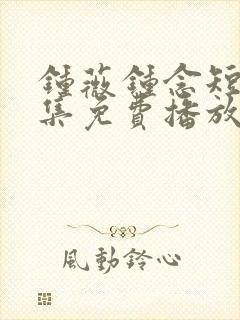 鍾薇鍾念短
集免費播放
風動鈴心